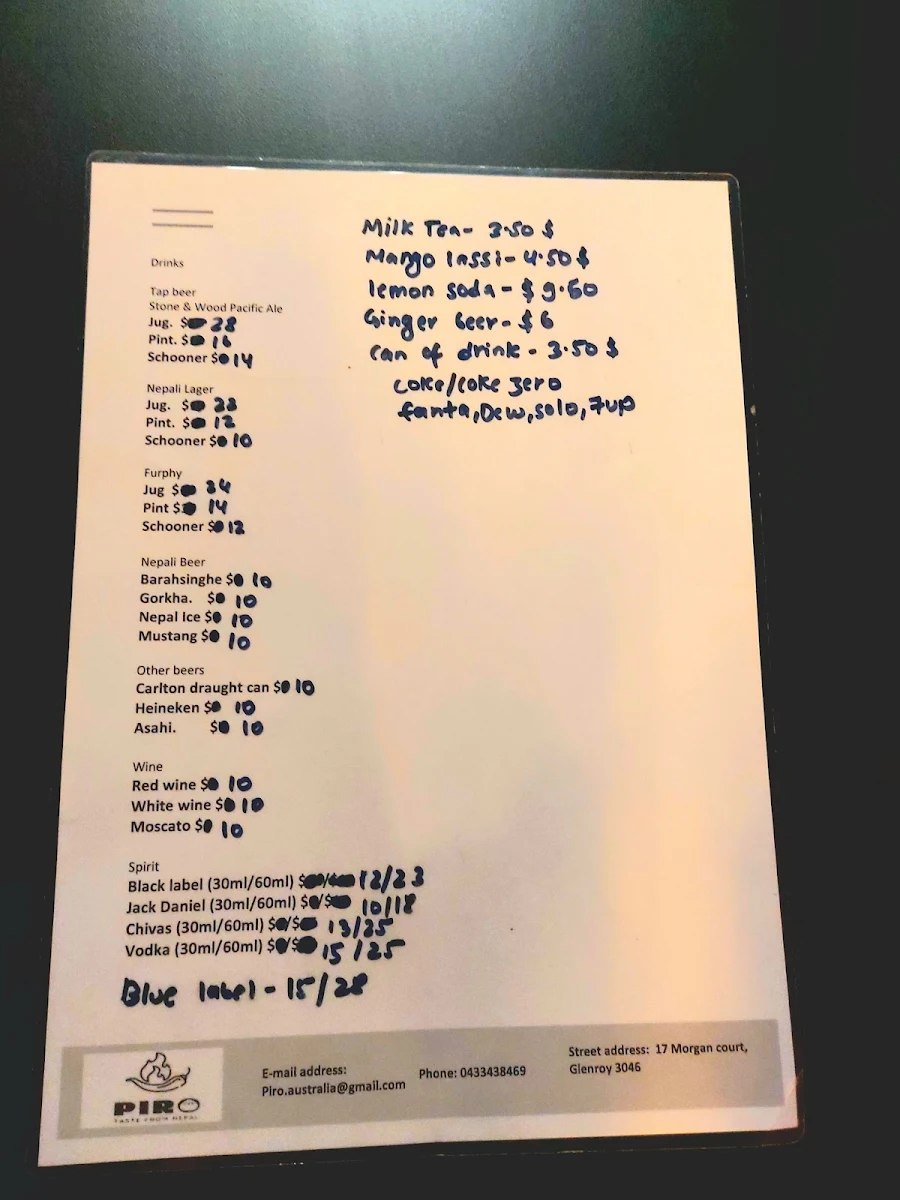 Drinks
Tap beer
Stone & Wood Pacific Ale
Jug. $ 28
Pint. $ 16
Schooner $ 14
Nepali Lager
Jug. $
Pint. $ 12
Schooner $ 10
Furphy
Jug $ 34
Pint $ 14
Schooner $ 12
Nepali Beer
Barahsinghe $ 10
Gorkha. $ 10
Nepal Ice $ 10
Mustang $ 10
Other beers
Carlton draught can $ 10
Heineken $ 10
Asahi. $ 10
Wine
Red wine $ 10
White wine $ 10
Moscato $ 10
Spirit
Black label (30ml/60ml) $ 12/23
Jack Daniel (30ml/60ml) $ /$ 10/18
Chivas (30ml/60ml) $ /$ 13/25
Vodka (30ml/60ml) $ /$ 15/25
Blue label - 15/28
Milk Tea - 3.50 $
Mango lassi - 4.50 $
lemon soda - $
Ginger beer - $6
can of drink - 3.50 $
coke/coke zero
fanta, Dew, solo, 7up
PIRO
TASTE FROM NEPAL
E-mail address:
Piro.australia@gmail.com
Phone: 0433438469
Street address: 17 Morgan court,
Glenroy 3046